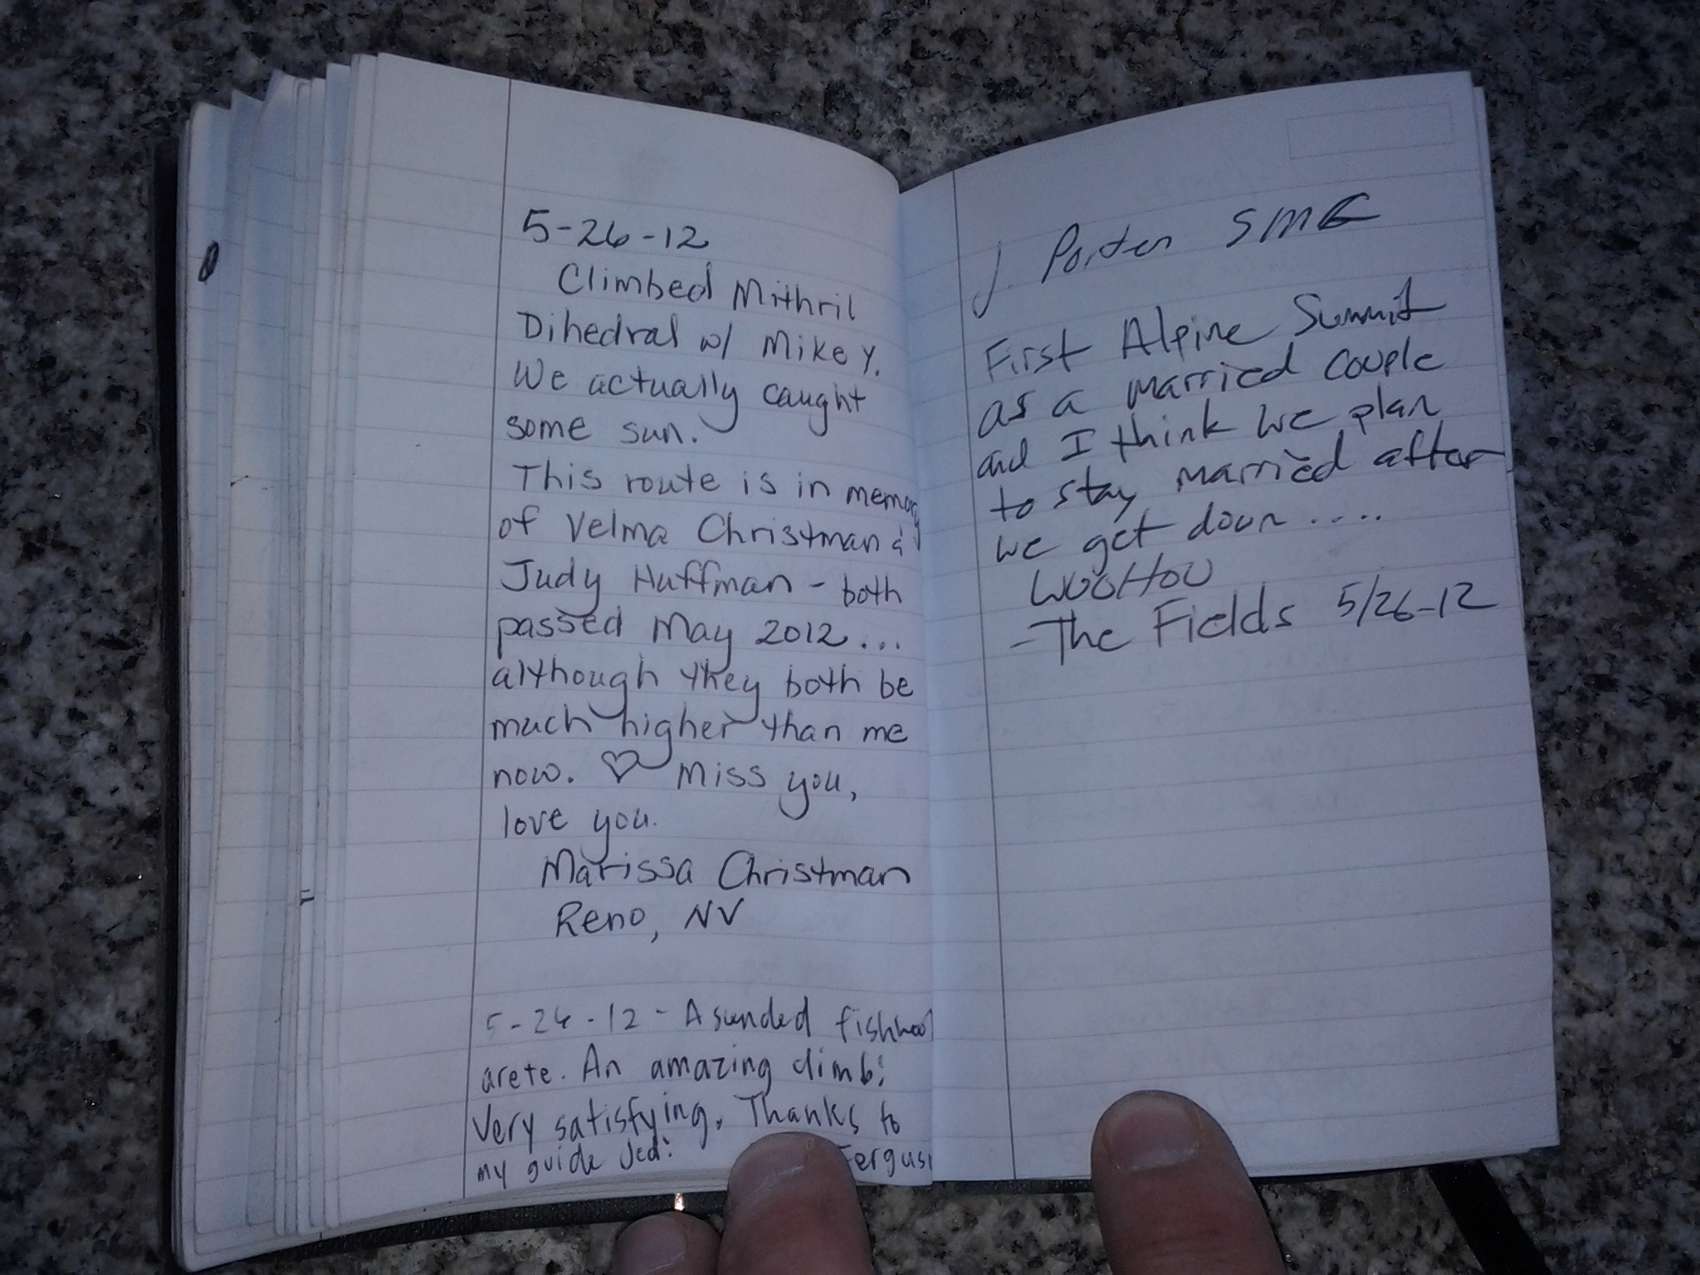 5-26-12
Climbed Mithril
Dihedral w/ Mike Y.
We actually caught
some sun.
This route is in memory
of Velma Christman &
Judy Huffman - both
passed May 2012...
although they both be
much higher than me
now. ♡ Miss you,
love you.
Marissa Christman
Reno, NV
5-26-12 - Asunded fishhook
arete. An amazing climb!
Very satisfying. Thanks to
my guide Jed!
J. Porter SMG
First Alpine Summit
as a married couple
and I think we plan
to stay married after
we get down ....
WOOHOO
-The Fields 5/26-12